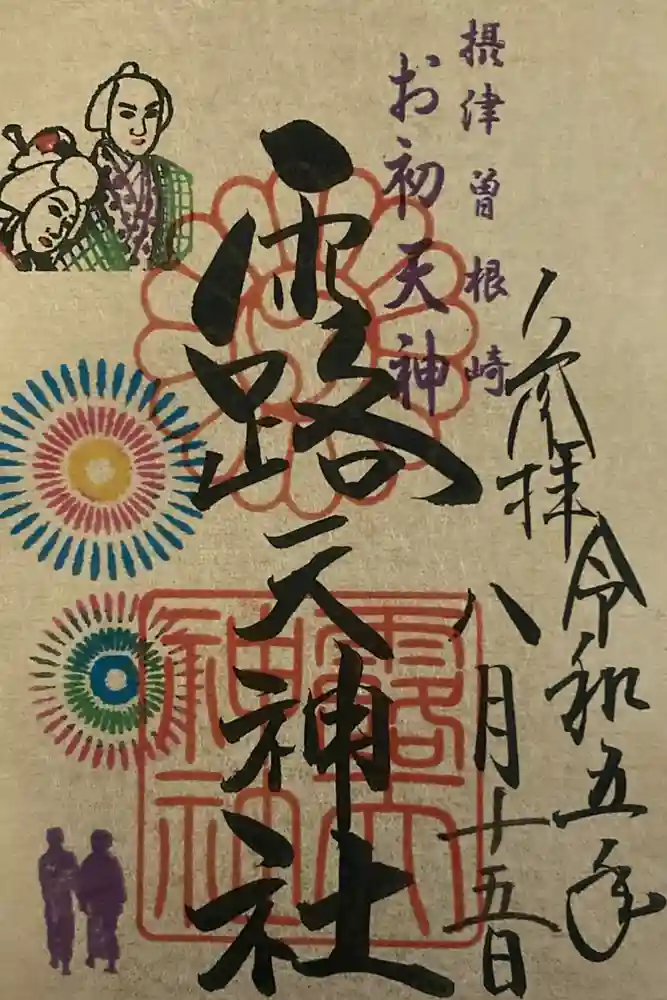 摂津曽根崎
お初天神
奉拝
令和五年
八月十五日
露天神社
露天
神社